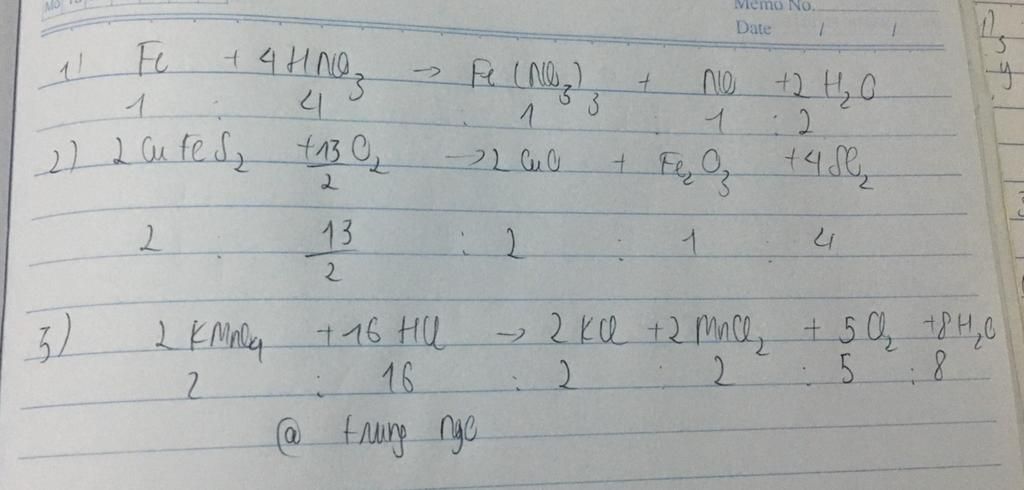 Memo No.
Date / /
1) Fe + 4HNO₃ → Fe(NO₃)₃ + NO + 2H₂O
1 : 4 : 1 : 1 : 2
2) 2CuFeS₂ + 13/2 O₂ → 2CuO + Fe₂O₃ + 4SO₂
2 : 13/2 : 2 : 1 : 4
3) 2KMnO₄ + 16HCl → 2KCl + 2MnCl₂ + 5Cl₂ + 8H₂O
2 : 16 : 2 : 2 : 5 : 8
@ trung ngo